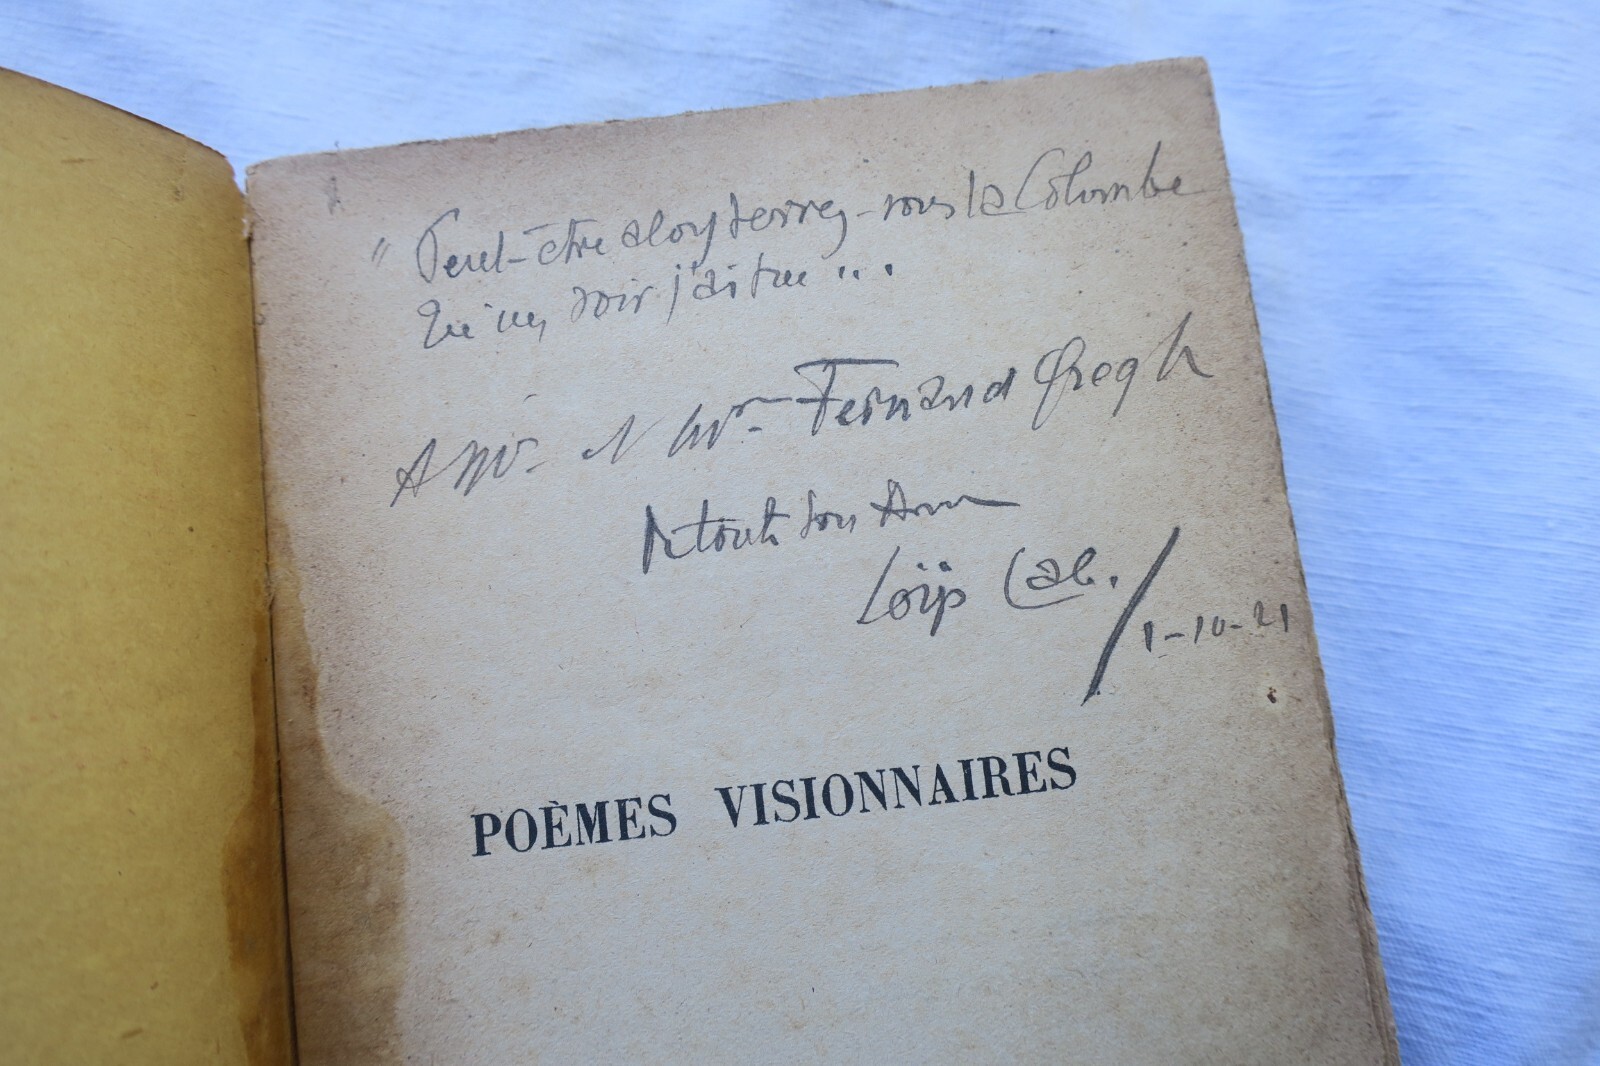 " Peut-être alors verrez-vous la Colombe
Qu'un soir j'ai tue ...
A Mr. et Mme Fernand Gregh
De toute son Ame
Loÿs Lab.
1-10-21
POÈMES VISIONNAIRES